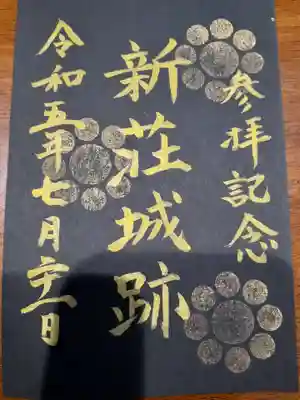 参拝記念
新荘城跡
令和五年七月二十一日